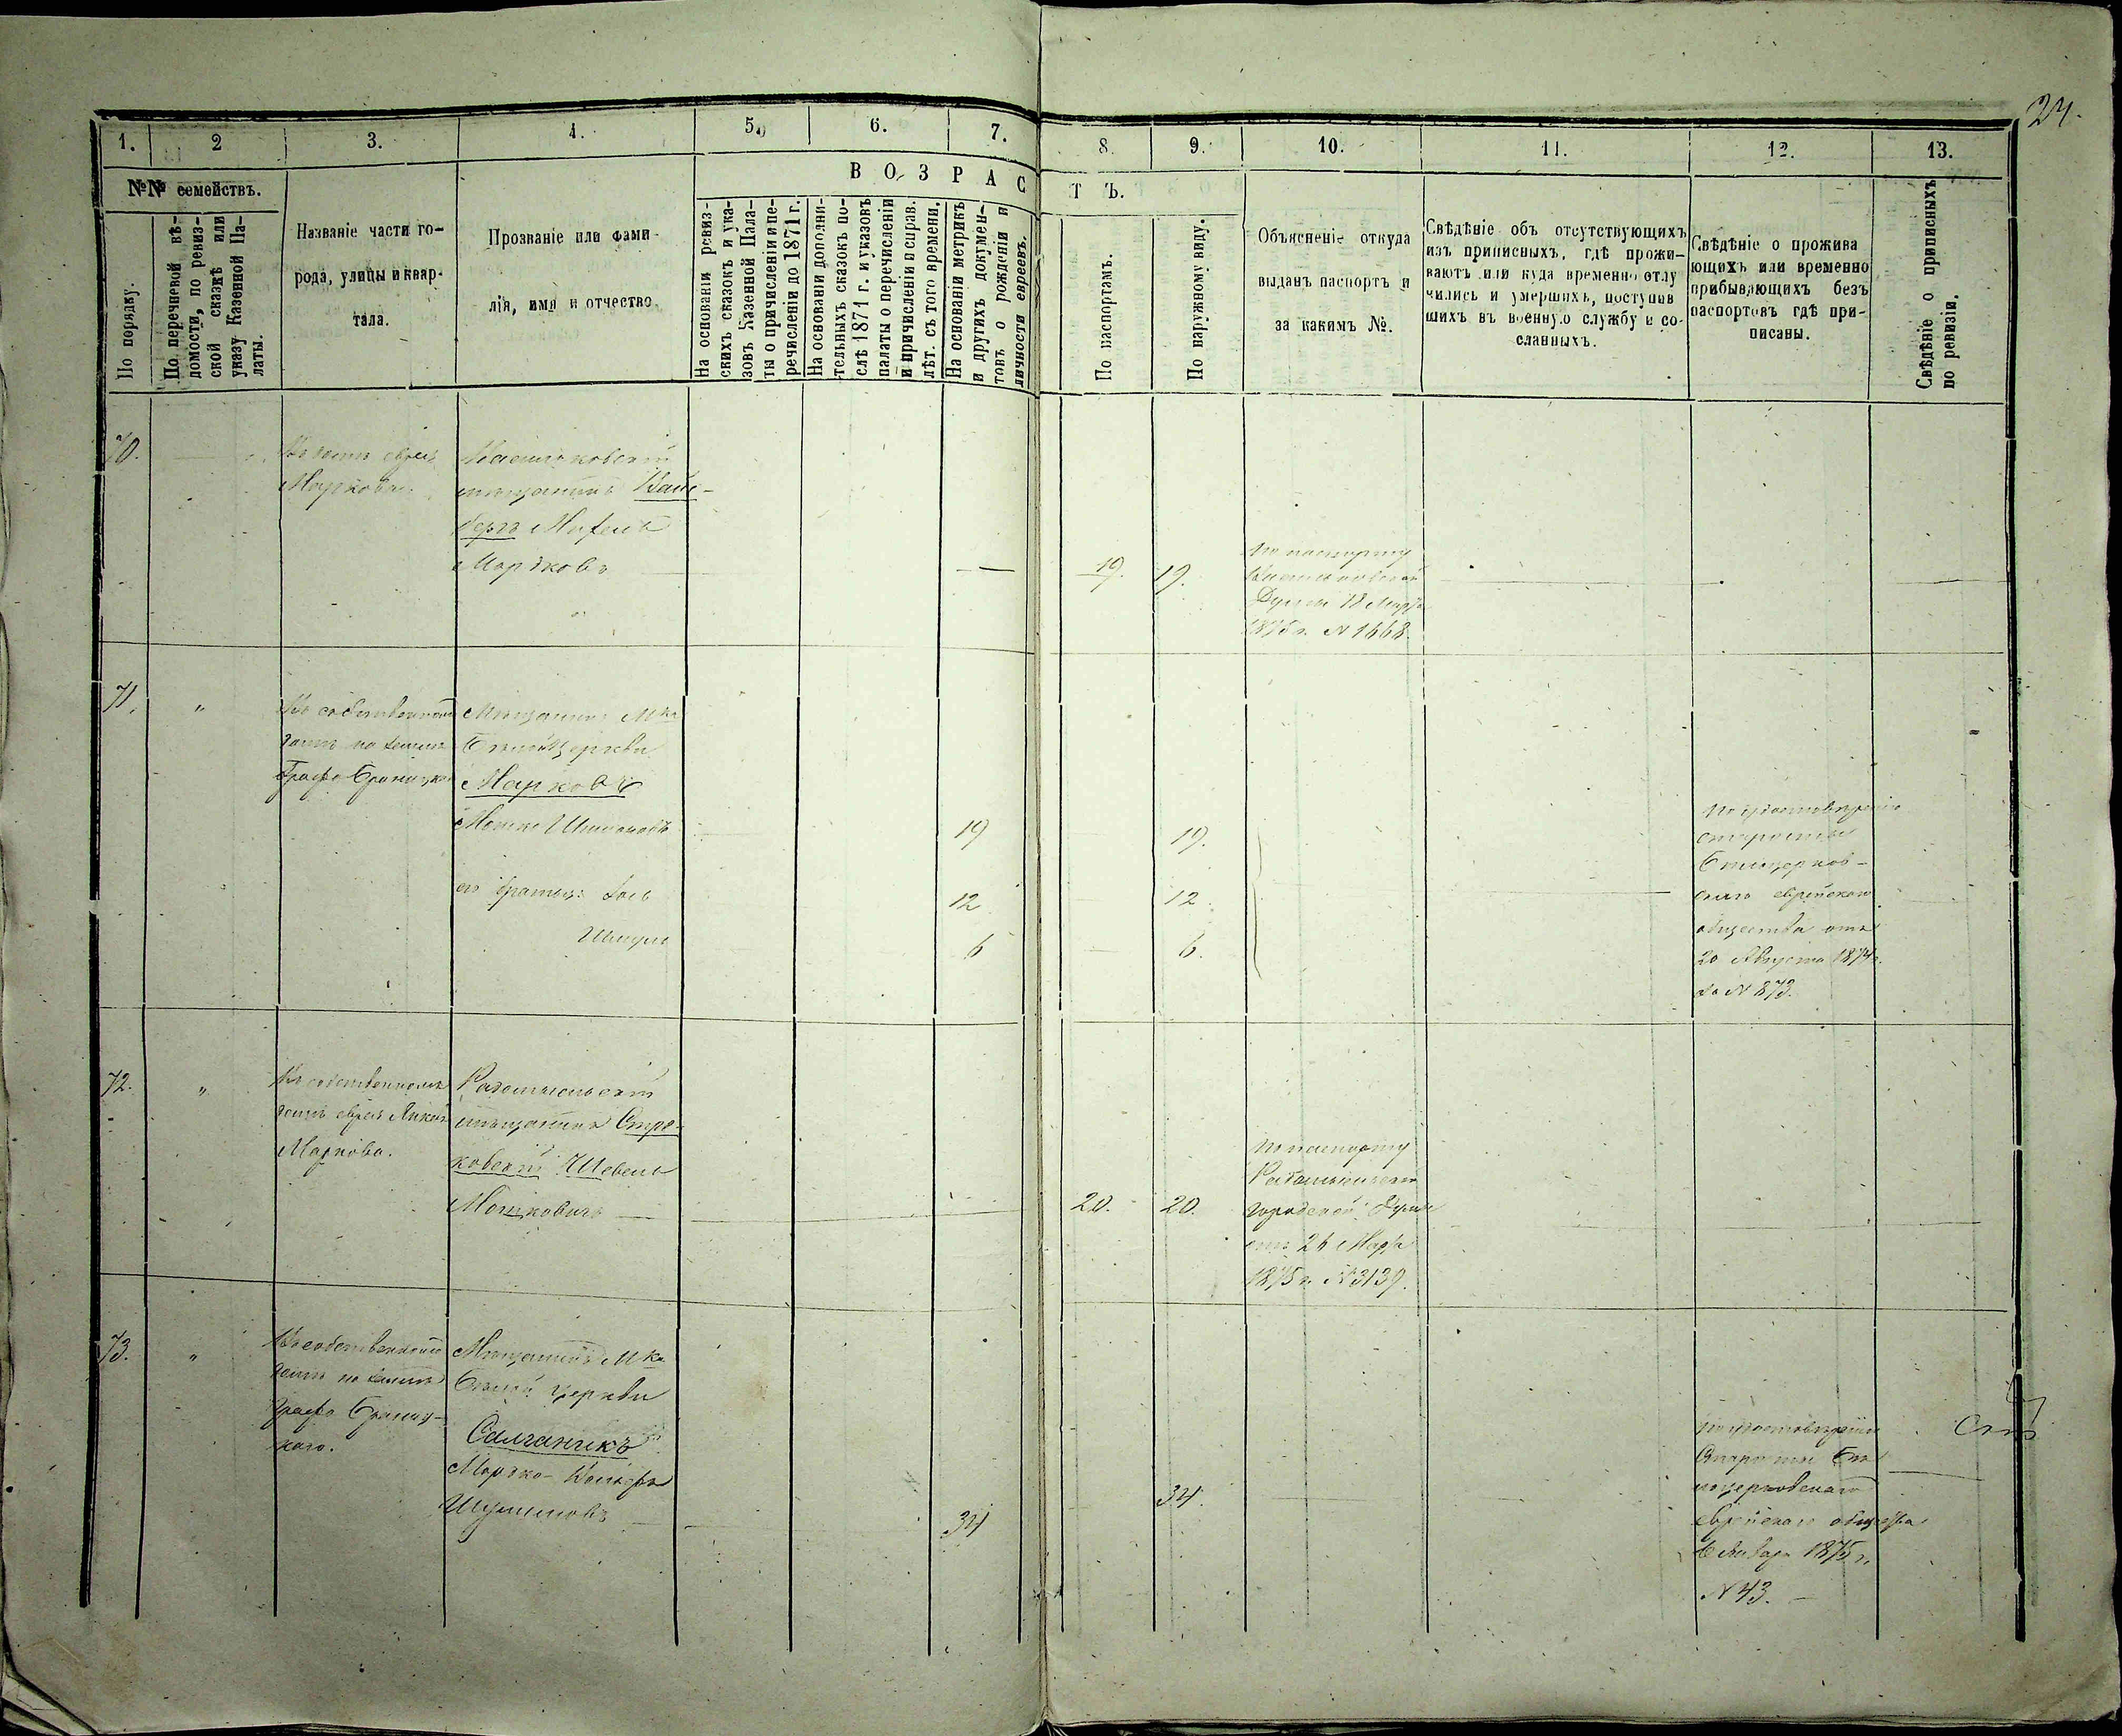 24.
1.
2
3.
4.
5.
6.
7.
8.
9.
10.
11.
12.
13.
№№ семействъ.
По порядку.
По перечневой вѣ-
домости, по ревиз-
ской сказкѣ или
указу Казенной Па-
латы.
Названіе части го-
рода, улицы и квар-
тала.
Прозваніе или фами-
лія, имя и отчество.
ВОЗРАСТЪ.
На основаніи ревиз-
скихъ сказокъ и ука-
зовъ Казенной Пала-
ты о причисленіи и пе-
речисленіи до 1871 г.
На основаніи дополни-
тельныхъ сказокъ по-
слѣ 1871 г. и указовъ
палаты о перечисленіи
и причисленіи и справ.
лѣт. съ того времени.
На основаніи метрикъ
и другихъ докумен-
товъ о рожденіи и
личности евреевъ.
По паспортамъ.
По наружному виду.
Объясненіе откуда
выданъ паспортъ и
за какимъ №.
Свѣдѣніе объ отсутствующихъ
изъ приписныхъ, гдѣ прожи-
ваютъ или куда временно отлу
чились и умершихъ, поступив
шихъ въ военную службу и со-
сланныхъ.
Свѣдѣніе о прожива
ющихъ или временно
прибывающихъ безъ
паспортовъ гдѣ при-
писаны.
Свѣдѣніе о приписныхъ
по ревизіи.
70.
Въ домѣ еврея
Маркова.
Васильковскій
мѣщанинъ Вайс-
бергъ
Мордковъ
19.
19.
По паспорту
Васильковской
Думы 18 Марта
1875 г. № 1668.
71.
"
Въ собственномъ
домѣ на землѣ
Графа Браницка
Мѣщанинъ Мка
Бѣлой Церкви
Марковъ
Мошко
его братья:
Шмуль
19
12
6
19.
12.
6.
По удостовѣренію
старосты
Бѣлоцерков-
скаго еврейскаго
общества отъ
20 Августа 1874 г.
за № 873.
72.
"
Въ собственномъ
домѣ еврея
Маркова.
Радомысльскій
мѣщанинъ Стра-
ковскій Шевель
Мошковичъ
20.
20.
По паспорту
Радомысльской
городской Думы
отъ 26 Марта
1875 г. № 3139.
73.
"
Въ собственномъ
домѣ на землѣ
Графа Браниц-
каго.
Мѣщанинъ Мка
Бѣлой Церкви
Салганикъ
Мордко-
Шулимовъ
34
34.
По удостовѣренію
Старосты Бѣ
лоцерковскаго
еврейскаго общества
Января 1875 г.
№ 43.